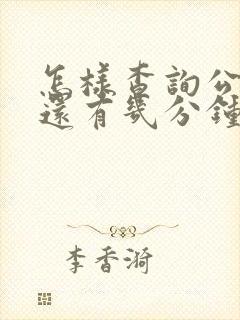 怎樣查詢公
還有幾分鐘
李香漪